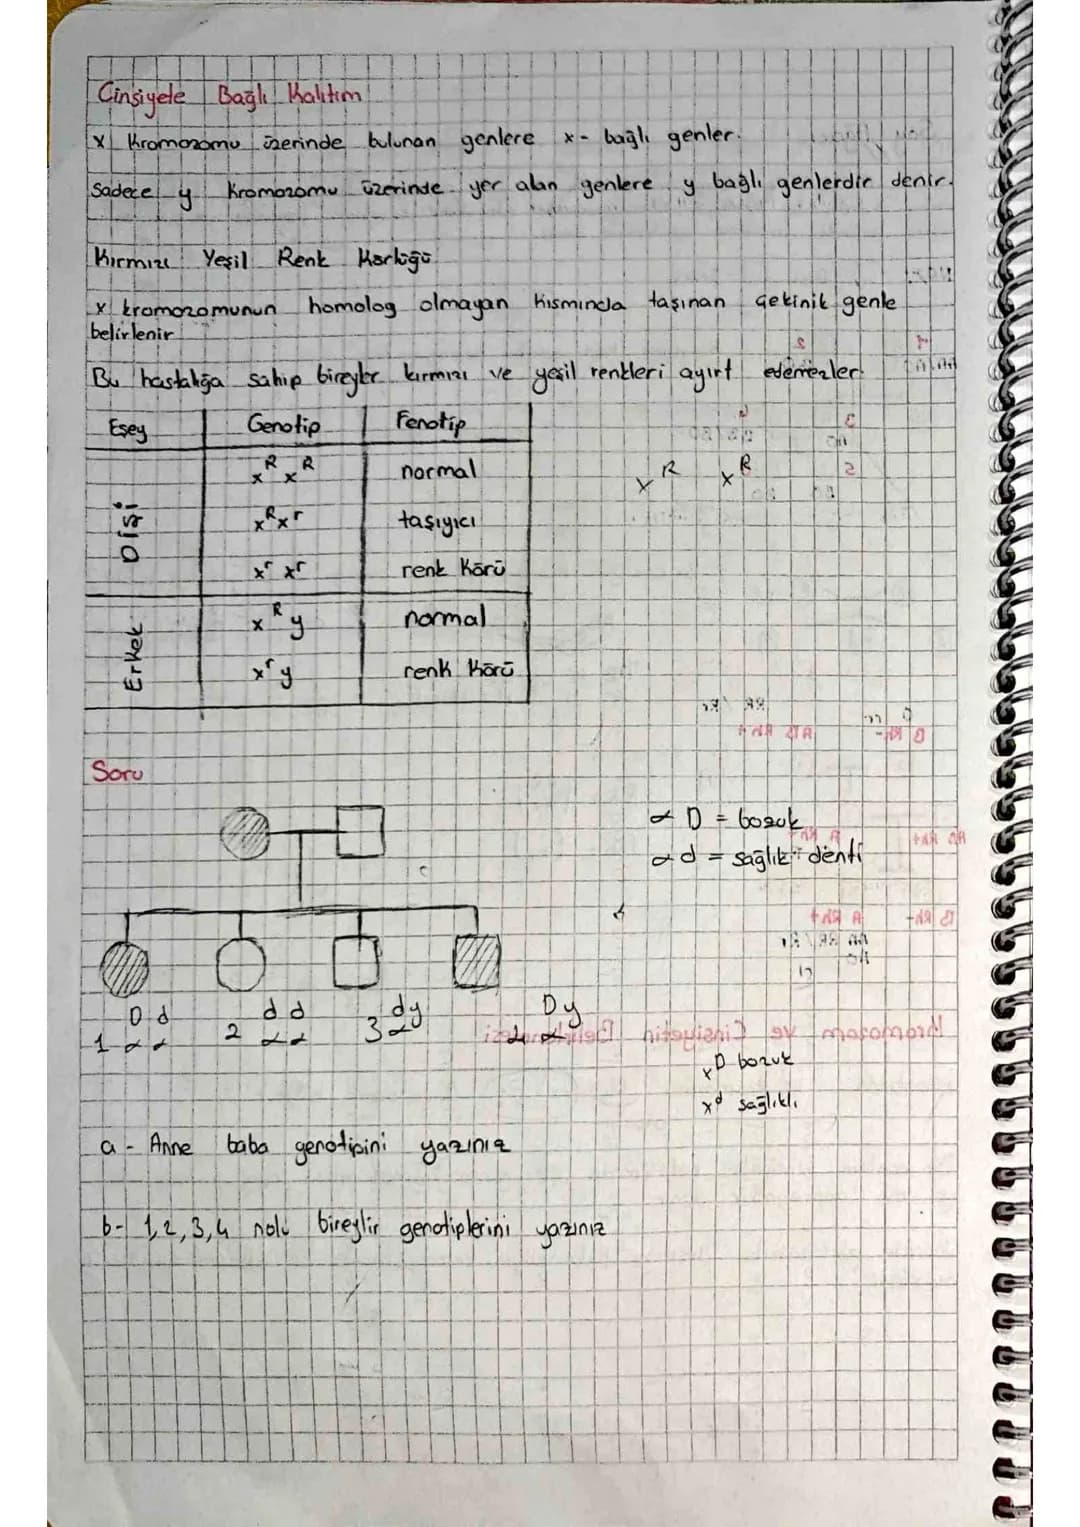 Cinsiyete Bağlı Kalıtım
X Kromozomu üzerinde bulunan genlere x- bağlı genler.
Sadece y Kromozomu üzerinde yer alan genlere y bağlı genlerdir denir.
Kırmızı Yeşil Renk Körlüğü
X kromozomunun homolog olmayan kısmında taşınan çekinik genle
belirlenir
Bu hastalığa sahip bireyler kırmızı ve yeşil renkleri ayırt edemezler.
Eşey Genotip Fenotip
Dişi
x^R x^R normal
x^R x^r taşıyıcı
x^r x^r renk Körü
Erkek
x^R y normal
x^r y renk Körü
x^R x^R
Soru
α D = bozuk
α d = sağlık denti
1 α^D α^d
2 α^d α^d
3 α^d y
α^D y
x^D bozuk
x^d sağlıklı
a - Anne baba genotipini yazınız
b- 1,2,3,4 nolu bireylir genotiplerini yazınız